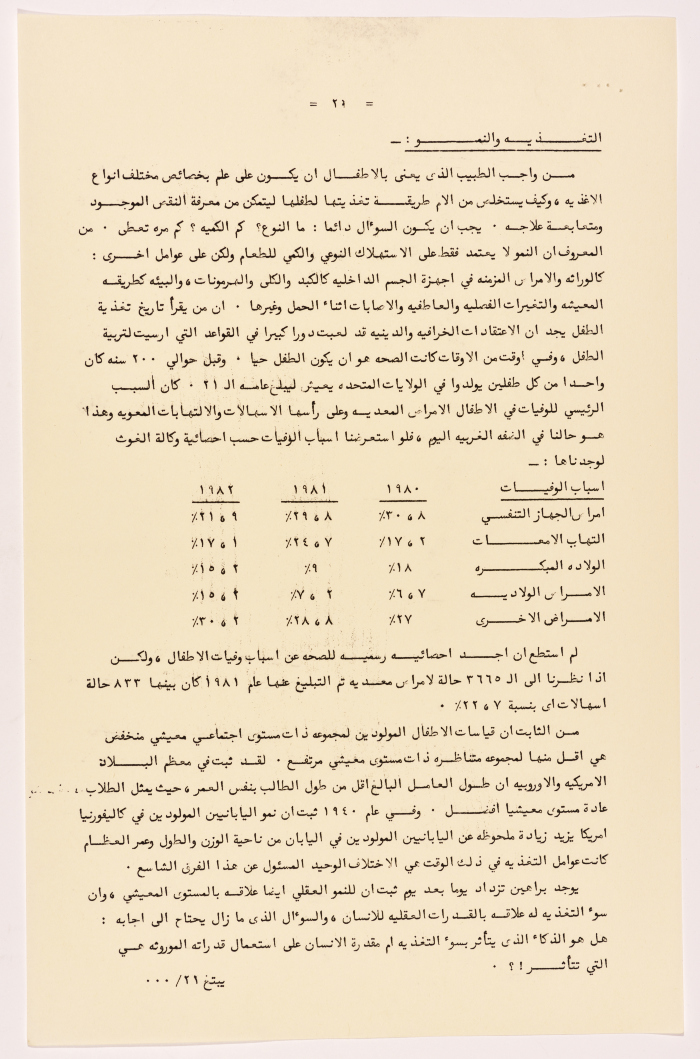 = ٢١ =
التغـــذيــــه والنمــــــو : ــ
مــن واجب الطبيب الذى يعنى بالاطفـــال ان يكــون على علم بخصائص مختلف انواع
الاغذيه ، وكيف يستخلص من الام طريقــــة تغذيتها لطفلها ليتمكن من معرفة النقص الموجــود
ومتابعـة علاجــه ٠ يجب ان يكــون السوءال دائما : ما النوع؟ كم الكميه ؟ كم مره تعطى ٠ من
المعروف ان النمو لا يعتمد فقط على الاستهلاك النوعي والكمي للطعام ولكن على عوامل اخــرى :
كالوراثه والامراض المزمنه في اجهزة الجسم الداخليه كالكبد والكلى والهرمونات ، والبيئه كطريقــه
المعيشه والتغيرات الفصليه والعاطفيه والاصابات اثناء الحمل وغيرها ٠ ان من يقرأ تاريخ تغذية
الطفل يجد ان الاعتقادات الخرافيه والدينيه قد لعبت دورا كبيرا في القواعد التي ارسيت لتربية
الطفل ، وفــي اوقت من الاوقات كانت الصحه هو ان يكون الطفل حيا ٠ وقبل حوالي ٢٠٠ سنه كان
واحــدا من كل طفلين يولدوا في الولايات المتحده يعيش ليبلغ عامــه الـ ٢١ ٠ كان السبــب
الرئيسي للوفيات في الاطفال الامراض المعديــه وعلى رأسها الاسهالات والالتهابات المعويه وهذا
هــو حالنا في الضفه الغربيه اليوم ، فلو استعرضنا اسباب الوفيات حسب احصائية وكالة الغوث
لوجدناها : ــ
اسباب الوفيــــات ١٩٨٠ ١٩٨١ ١٩٨٢
امراض الجهاز التنفسي ٨ ، ٣٠٪ ٨ ، ٢٩٪ ٩ ، ٢١٪
التهاب الامعــــــات ٢ ، ١٧٪ ٧ ، ٢٤٪ ١ ، ١٧٪
الولاده المبكــــــره ١٨٪ ٩٪ ٢ ، ١٥٪
الامـــراض الولاديـــه ٧ ، ٦٪ ٢ ، ٧٪ ، ١٥٪
الامـــراض الاخــرى ٢٧٪ ٨ ، ٢٨٪ ٢ ، ٣٠٪
لم استطع ان اجــد احصائيــه رسميــه للصحه عن اسباب وفيات الاطفال ، ولكــن
اذا نظــرنا الى الـ ٣٦٦٥ حالة لامراض معديــه تم التبليغ عنها عام ١٩٨١ كان بينها ٨٣٣ حالة
اسهالات اى بنسبة ٧ ، ٢٢٪ ٠
مــن الثابت ان قياسات الاطفال المولودين لمجموعه ذات مستوى اجتماعي معيشي منخفض
هي اقل منها لمجموعه متناظره ذات مستوى معيشي مرتفع ٠ لقــد ثبت في معظم البــــلاد
الامريكيه والاوروبيه ان طــول العامــل البالغ اقل من طول الطالب بنفس العمر ، حيث يمثل الطلاب
عادة مستوى معيشيا افضــل ٠ وفــي عام ١٩٤٠ ثبت ان نمو اليابانيين المولودين في كاليفورنيا
امريكا يزيد زيادة ملحوظه عن اليابانيين المولودين في اليابان من ناحية الوزن والطول وعمر العظــام
كانت عوامل التغذيه في ذلك الوقت هي الاختلاف الوحيد المسئول عن هذا الفرق الشاسع ٠
يوجد براهين تزداد يوما بعد يوم ثبت ان للنمو العقلي ايضا علاقــه بالمستوى المعيشي ، وان
سوء التغذيه له علاقــه بالقــدرات العقليه للانسان ، والسوءال الذى ما زال يحتاج الى اجابه :
هل هو الذكاء الذى يتأثر بسوء التغذيه ام مقدرة الانسان على استعمال قدراته الموروثه هــي
التي تتأثـــر ! ؟ ٠
يبتغ ٢١/ ٠٠٠